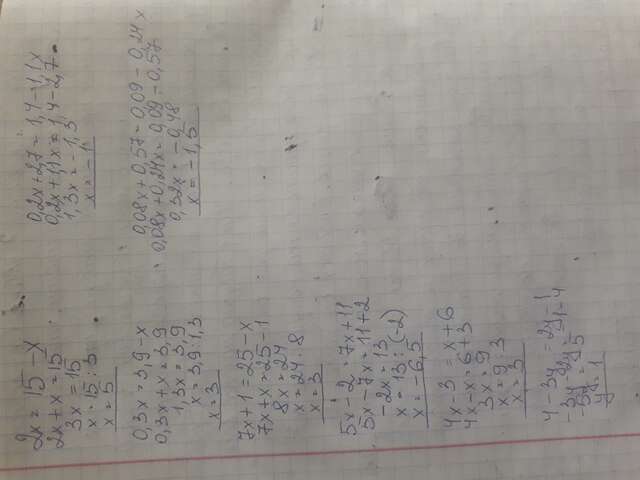 2x = 15 - x
2x + x = 15
3x = 15
x = 15 : 3
x = 5
0,3x = 3,9 - x
0,3x + x = 3,9
1,3x = 3,9
x = 3,9 : 1,3
x = 3
7x + 1 = 25 - x
7x + x = 25 - 1
8x = 24
x = 24 : 8
x = 3
5x - 2 = 7x + 11
5x - 7x = 11 + 2
-2x = 13
x = 13 : (-2)
x = -6,5
4x - 3 = x + 6
4x - x = 6 + 3
3x = 9
x = 9 : 3
x = 3
4 - 3y
0,2x + 2,7 = 1,4 - 1,1x
0,2x + 1,1x = 1,4 - 2,7
1,3x = -1,3
x = -1
0,08x + 0,57 = 0,09 - 0,24x
0,08x + 0,24x = 0,09 - 0,57
0,32x = -0,48
x = -1,5